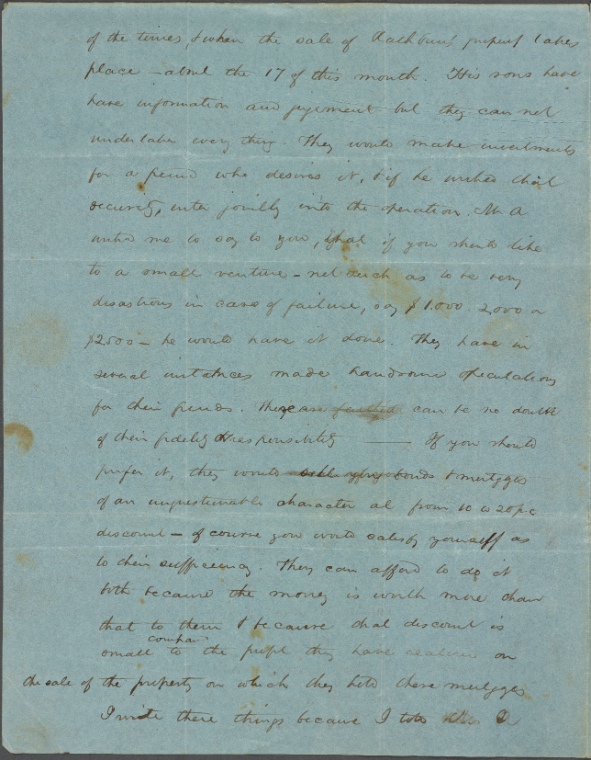 of the times, & when the sale of Rathbun's property takes
place – about the 17 of this month. His sons have
have information and judgement but they can not
undertake every thing. They would make investments
for a friend who desires it, & if he wished their
security, enter jointly into the operation. Mr A
wished me to say to you, that if you should like
to a small venture – not such as to be very
disastrous in case of failure, say $1.000 2,000 or
$2500 – he would have it done. They have in
several instances made handsome speculations
for their friends. There can be no doubt
of their fidelity & responsibility —— If you should
prefer it, they would sell you bonds & mortgages
of an unquestionable character at from 10 to 20 pc
discount – of course you would satisfy yourself as
to their sufficiency. They can afford to do it
both because the money is worth more than
that to them & because that discount is
small compar to the profit they have realized on
the sale of the property on which they hold these mortgages
I write these things because I told